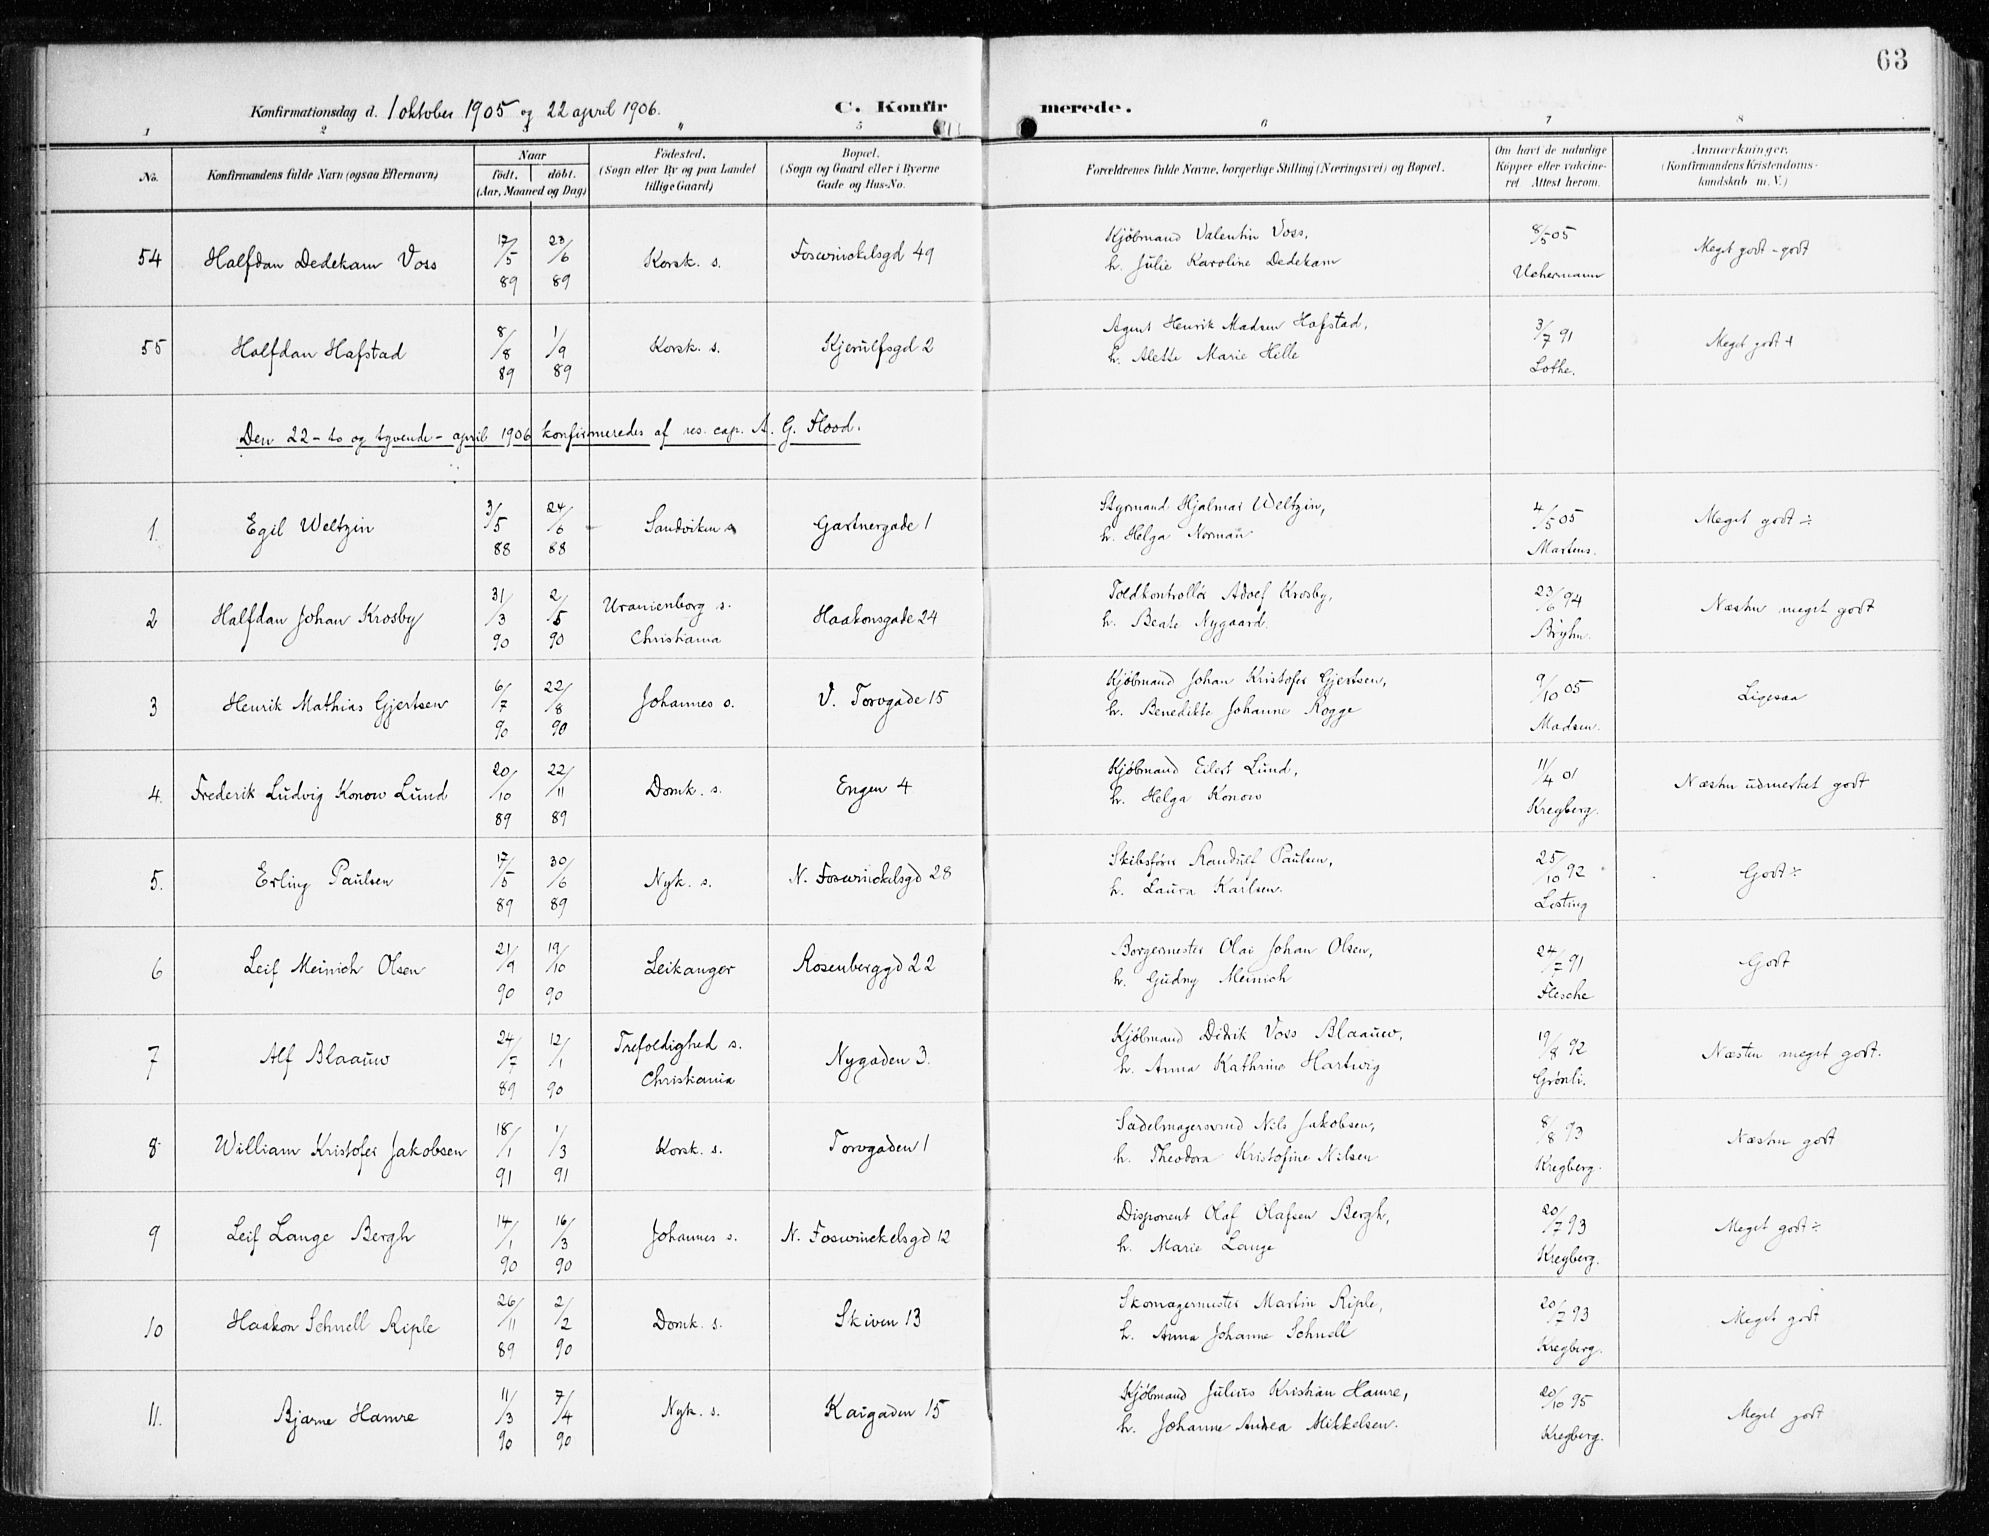 63
Konfirmationsdag d. 1 oktober 1905 og 22 april 1906.
C. Konfirmerede.
1 2 3 4 5 6 7 8
No.
Konfirmandens fulde Navn (ogsaa Efternavn)
Naar
født. døbt.
(Aar, Maaned og Dag)
Fødested.
(Sogn eller By og paa Landet
tillige Gaard)
Bopæl.
(Sogn og Gaard eller i Byerne
Gade og Hus-No.
Forældrenes fulde Navne, borgerlige Stilling (Næringsvei) og Bopæl.
Om havt de naturlige
Kopper eller vakcine-
ret. Attest herom.
Anmærkninger.
(Konfirmandens Kristendoms-
kundskab m. V.)
54 Halfdan Dedekam Voss 17/5 89 23/6 89 Korsk. s. Foswinckelsgd 49
Kjøbmand Valentin Voss,
h. Julie Karoline Dedekam
8/5 05
Uchermann
Meget godt - godt
55 Halfdan Hafstad 8/8 89 1/9 89 Korsk. s. Kjerulfsgd 2
Agent Henrik Madsen Hafstad,
h. Alette Marie Hille
3/7 91
Lothe.
Meget godt +
Den 22 - to og tyvende - april 1906 konfirmeredes af res. cap. A. G. Flood.
1. Egil Weltzin 3/5 88 24/6 88 Sandviken s Gartnergade 1
Styrmand Hjalmar Weltzin,
h. Helga Norman
4/5 05
Martens.
Meget godt ÷
2 Halfdan Johan Krosby 31/3 90 2/5 90 Uranienborg s.
Christiania
Haakonsgade 24
Toldkontrollør Adolf Krosby,
h. Beate Nygaard.
23/6 94
Bryhn.
Næsten meget godt
3 Henrik Mathias Gjertsen 6/7 90 22/8 90 Johannes s. V. Torvgade 15
Kjøbmand Johan Kristofer Gjertsen,
h. Benedikte Johanne Rogge
9/10 05
Madsen.
Ligesaa
4. Frederik Ludvig Konow Lund 20/10 89 22/11 89 Domk. s. Engen 4
Kjøbmand Eilert Lund,
h. Helga Konow
11/4 01
Kregberg.
Næsten udmerket godt
5. Erling Paulsen 17/5 89 30/6 89 Nyk. s. N. Foswinckelsgd 28
Skibsfører Randulf Paulsen,
h. Laura Karlsen.
25/10 92
Lesting
Godt ÷
6 Leif Meinich Olsen 21/9 90 19/10 90 Leikanger Rosenberggd 22
Borgermester Olai Johan Olsen,
h. Gudny Meinich
24/7 91
Flesche
Godt
7 Alf Blaauw 24/7 89 12/1 90 Trefoldighed s.
Christiania
Nygaden 3.
Kjøbmand Didrik Voss Blaauw,
h. Anna Kathrine Hartwig
19/8 92
Grønli.
Næsten meget godt.
8 William Kristofer Jakobsen 18/1 91 1/3 91 Korsk. s. Torvgaden 1
Sadelmagersvend Nils Jakobsen,
h. Theodora Kristofine Nilsen
8/8 93
Kregberg.
Næsten godt
9 Leif Lange Bergh 14/1 90 16/3 90 Johannes s. N. Foswinckelsgd 12
Disponent Olaf Olafsen Bergh,
h. Marie Lange
20/7 93
Kregberg.
Meget godt ÷
10 Haakon Schnell Riple 26/11 89 2/2 90 Domk. s. Skiven 13
Skomagermester Martin Riple,
h. Anna Johanne Schnell
20/7 93
Kregberg.
Meget godt
11. Bjarne Hamre 11/3 90 7/4 90 Nyk. s. Kaigaden 15
Kjøbmand Julius Kristian Hamre,
h. Johanne Andrea Mikkelsen.
20/10 95
Kregberg.
Meget godt